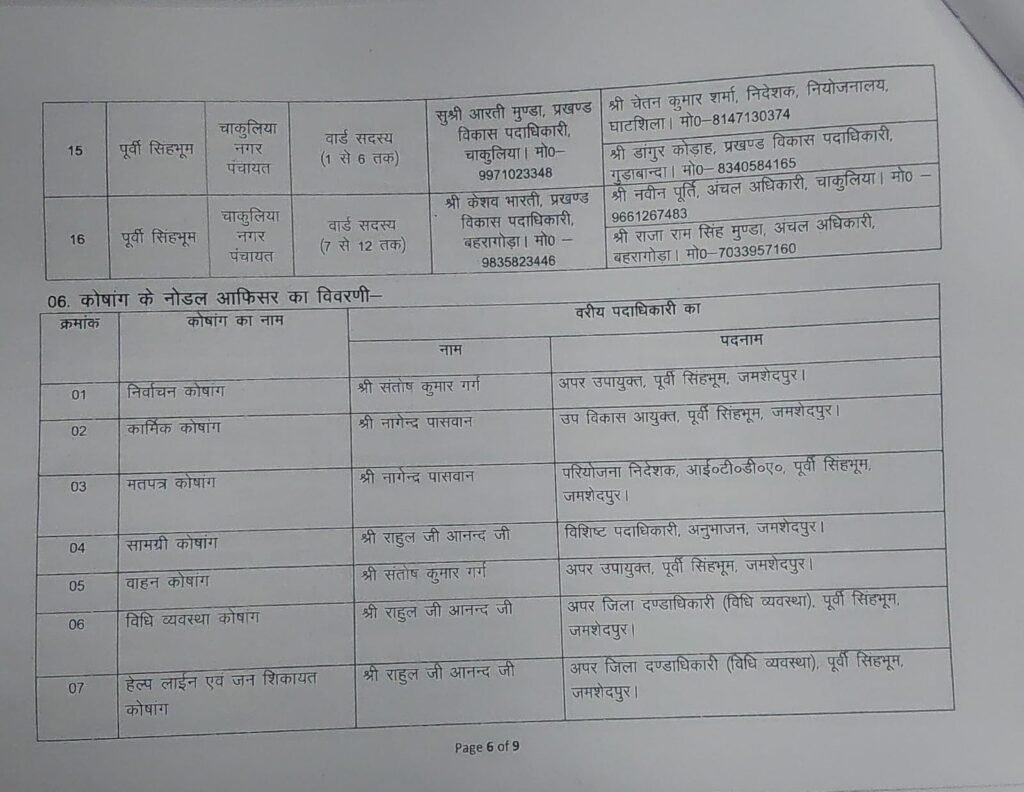 15 पूर्वी सिंहभूम चाकुलिया नगर पंचायत वार्ड सदस्य (1 से 6 तक)
सुश्री आरती मुण्डा, प्रखण्ड
विकास पदाधिकारी,
चाकुलिया। मो0–
9971023348
श्री चेतन कुमार शर्मा, निदेशक, नियोजनालय,
घाटशिला। मो0–8147130374
श्री डांगुर कोड़ाह, प्रखण्ड विकास पदाधिकारी,
गुड़ाबान्दा। मो0– 8340584165
16 पूर्वी सिंहभूम चाकुलिया नगर पंचायत वार्ड सदस्य (7 से 12 तक)
श्री केशव भारती, प्रखण्ड
विकास पदाधिकारी,
बहरागोड़ा। मो0 –
9835823446
श्री नवीन पूर्ति, अंचल अधिकारी, चाकुलिया। मो0 –
9661267483
श्री राजा राम सिंह मुण्डा, अंचल अधिकारी,
बहरागोड़ा। मो0–7033957160
06. कोषांग के नोडल आफिसर का विवरणी–
क्रमांक कोषांग का नाम वरीय पदाधिकारी का
नाम पदनाम
01 निर्वाचन कोषांग श्री संतोष कुमार गर्ग अपर उपायुक्त, पूर्वी सिंहभूम, जमशेदपुर।
02 कार्मिक कोषांग श्री नागेन्द्र पासवान उप विकास आयुक्त, पूर्वी सिंहभूम, जमशेदपुर।
03 मतपत्र कोषांग श्री नागेन्द्र पासवान परियोजना निदेशक, आई०टी०डी०ए०, पूर्वी सिंहभूम,
जमशेदपुर।
04 सामग्री कोषांग श्री राहुल जी आनन्द जी विशिष्ट पदाधिकारी, अनुभाजन, जमशेदपुर।
05 वाहन कोषांग श्री संतोष कुमार गर्ग अपर उपायुक्त, पूर्वी सिंहभूम, जमशेदपुर।
06 विधि व्यवस्था कोषांग श्री राहुल जी आनन्द जी अपर जिला दण्डाधिकारी (विधि व्यवस्था), पूर्वी सिंहभूम,
जमशेदपुर।
07 हेल्प लाईन एवं जन शिकायत श्री राहुल जी आनन्द जी अपर जिला दण्डाधिकारी (विधि व्यवस्था), पूर्वी सिंहभूम,
कोषांग जमशेदपुर।
Page 6 of 9